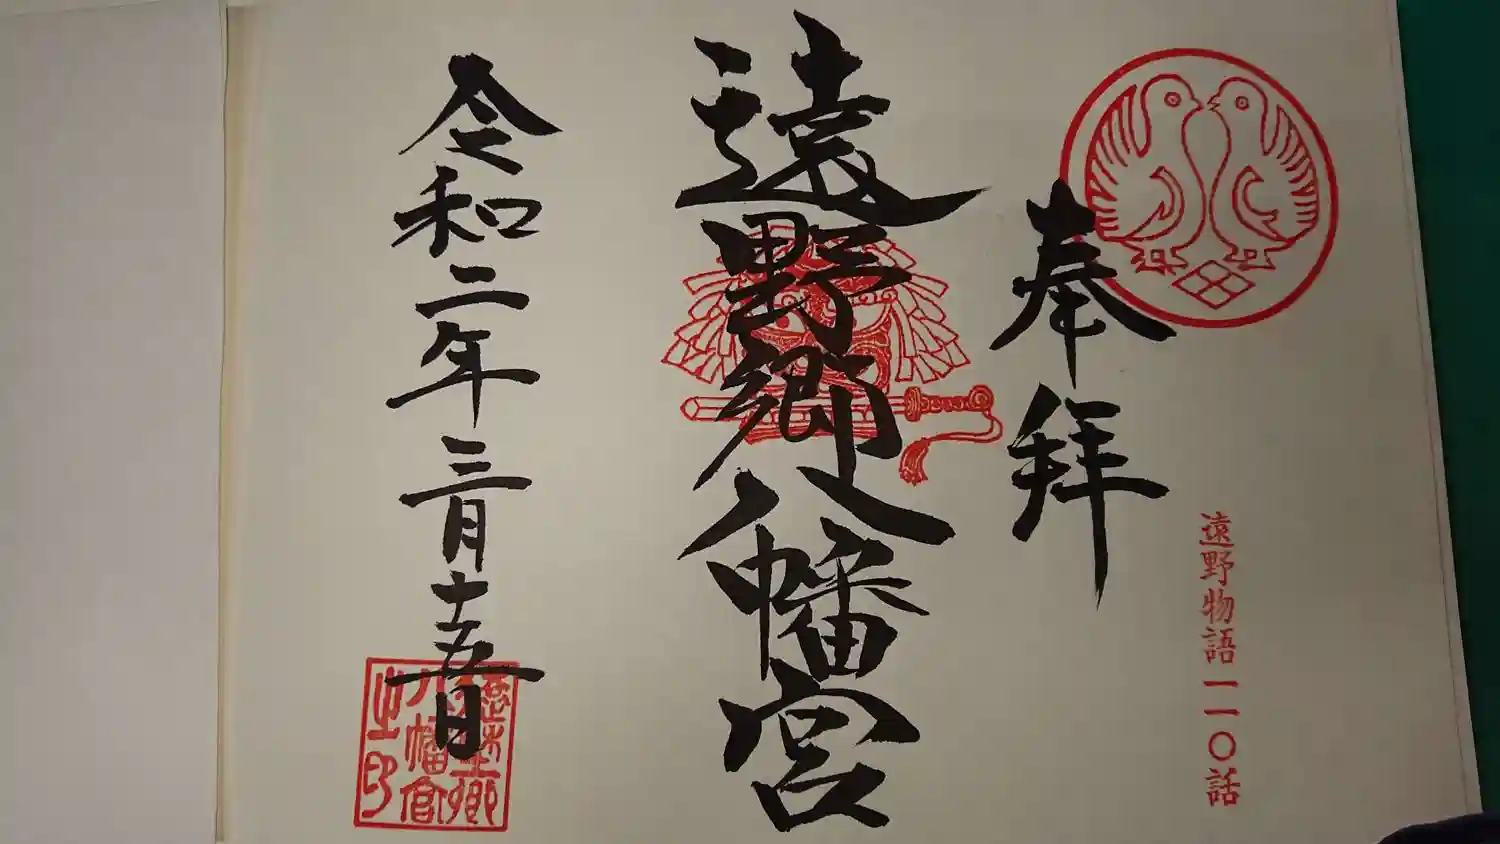 遠野物語一一〇話
奉拝
遠野郷八幡宮
令和二年三月十五日
八幡宮
之印